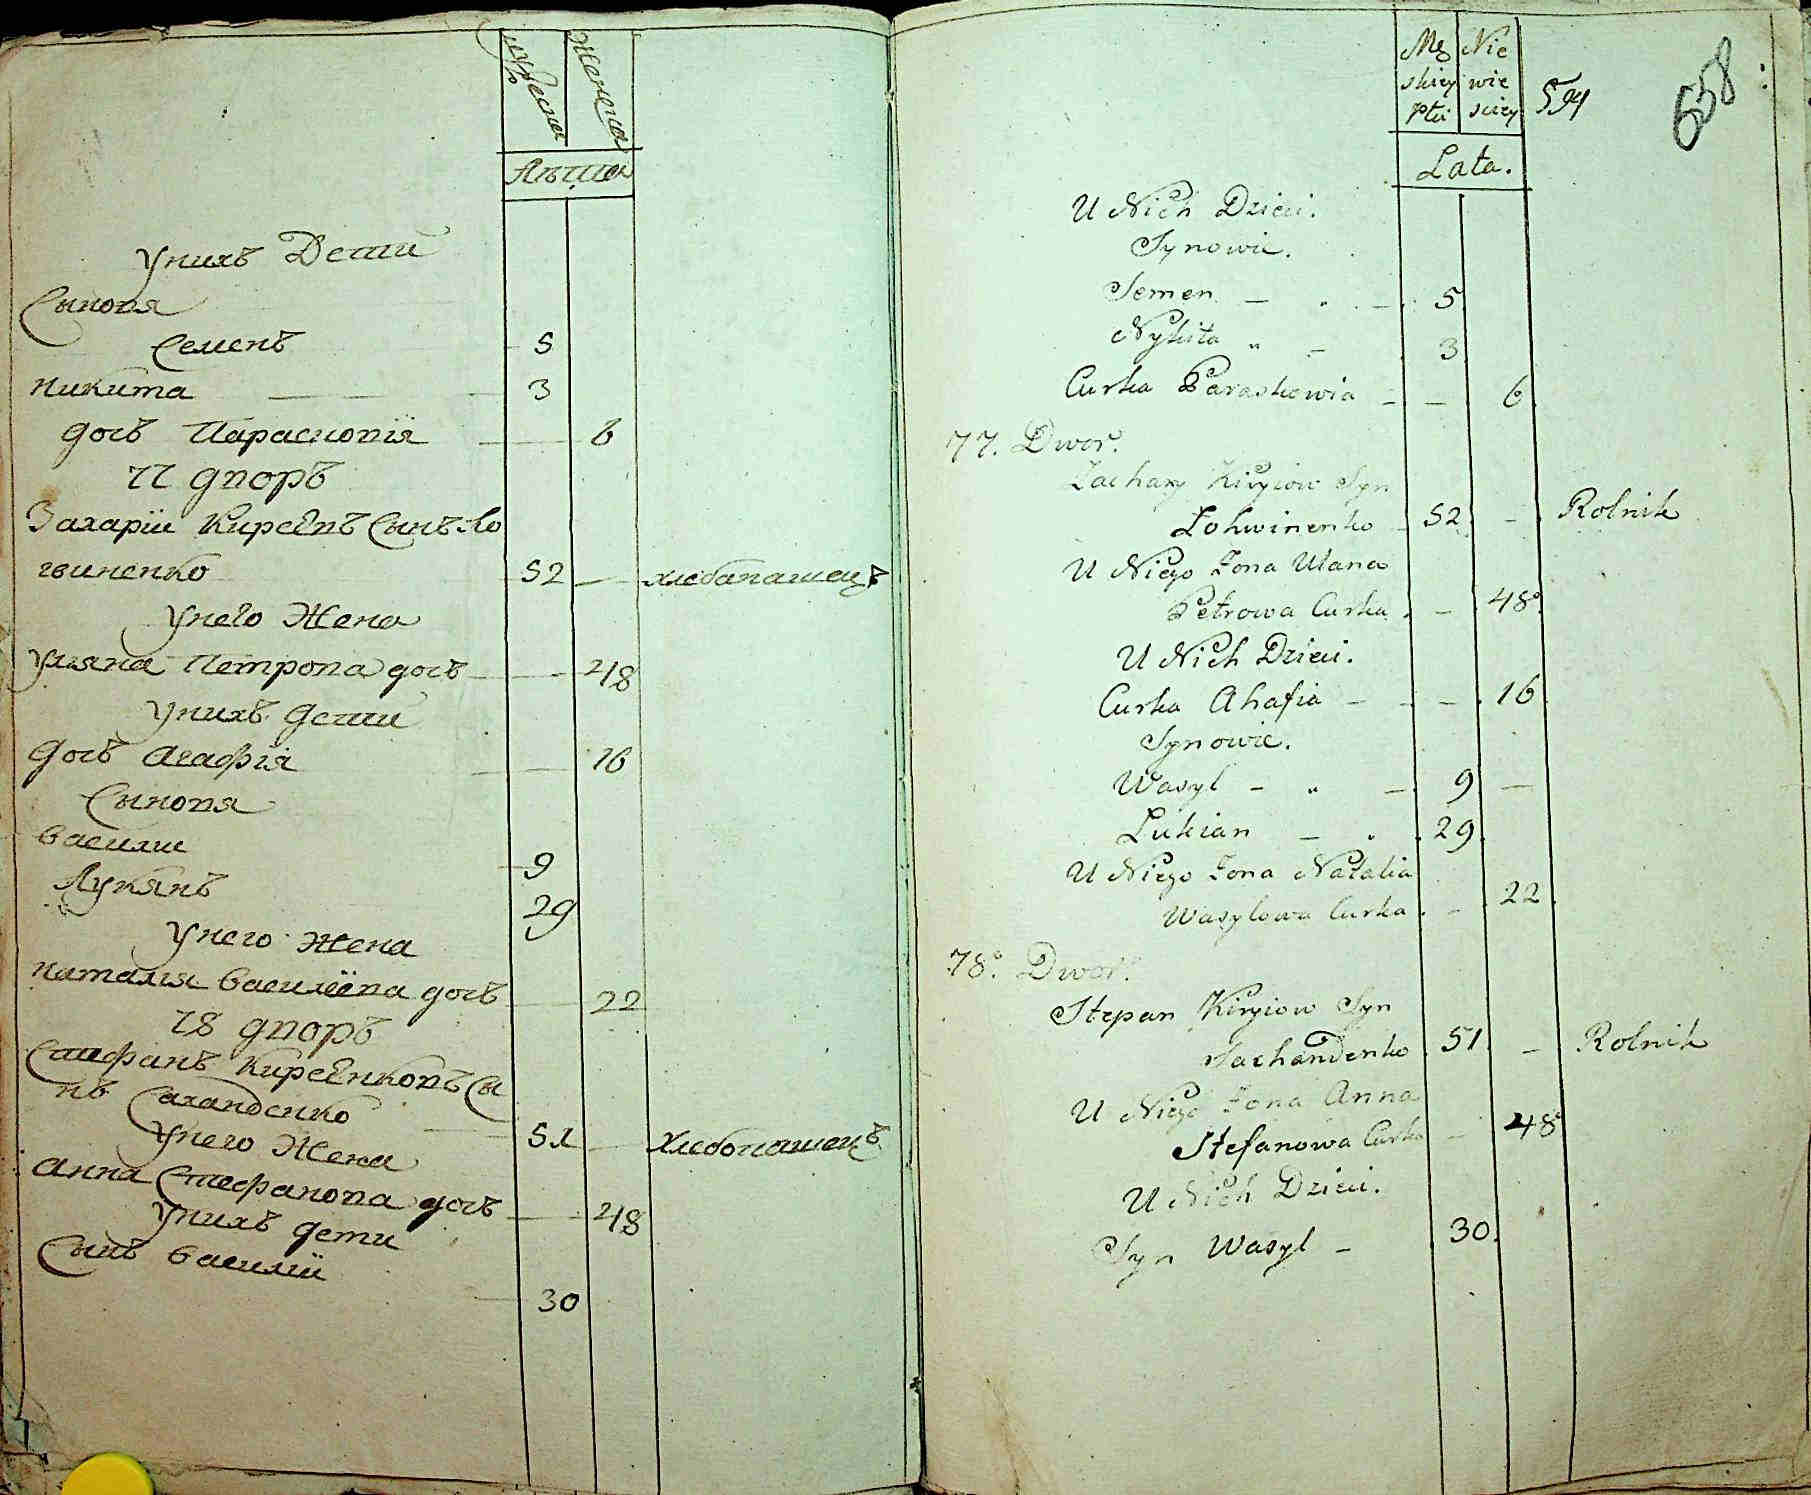 мужеска женска
Лѣта
У нихъ Дети
Сыновя
Семенъ 5
никита 3
дочь Парасковія 6
77 дворъ
Захарій Киреевъ Сынъ Ло
гвиненко 52 — хлебапашецъ
У него Жена
Уляна Петрова дочь 48
У нихъ дети
дочь Агафія 16
Сыновя
Василий 9
Лукянъ 29
У него жена
наталя Василёва дочь 22
78 дворъ
Стефанъ Киреенковъ Сы
нъ Саханденко 51 — хлебопашецъ
У него Жена
Анна Стефанова дочь 48
У нихъ дети
Сынъ Василій 30
Mę Nie
skiey wie
Płci sciey
594
658
Lata.
U Nich Dzieci.
Synowie.
Semen 5
Nykita 3
Curka Paraskowia 6
77. Dwor.
Zachary Kiryiow Syn
Lohwinenko 52 — Rolnik
U Niego Zona Ulana
Petrowa Curka 48
U Nich Dzieci.
Curka Ahafia 16
Synowie.
Wasyl 9 —
Lukian 29
U Niego Zona Natalia
Wasylowa Curka 22
78. Dwor.
Stepan Kiryiow Syn
Sachandenko 51 — Rolnik
U Niego Zona Anna
Stefanowa Curka 48
U Nich Dzieci.
Syn Wasyl 30.